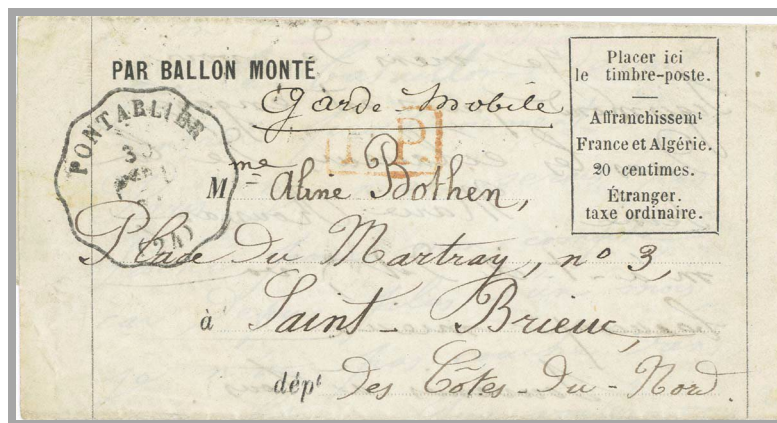 PAR BALLON MONTÉ
Garde-Mobile
PP
Placer ici
le timbre-poste.
Affranchissemt
France et Algérie.
20 centimes.
Étranger.
taxe ordinaire.
PONTARLIER
(24)
Mme Aline Bothen,
Place du Martray, no 3,
à Saint-Brieuc,
dépt des Côtes-du-Nord.